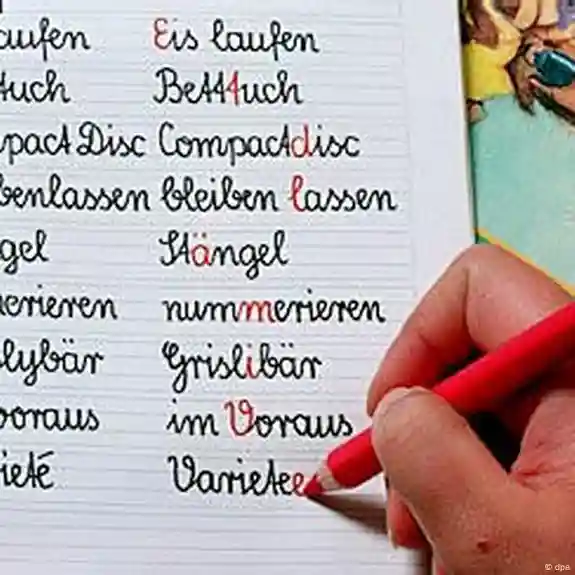 aufen Eis laufen
tuch Betttuch
pact Disc Compactdisc
benlassen bleiben lassen
gel Stängel
erieren nummerieren
lybär Grislibär
voraus im Voraus
ieté Varietee
© dpa